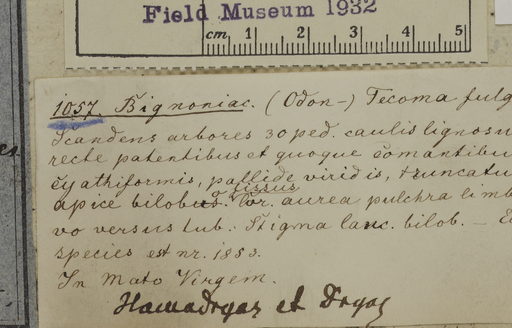 Field Museum 1932
cm 1 2 3 4 5
1057. Bignoniac. (Odon-) Tecoma fulg
Scandens arbores 30 ped. caulis lignosu
recte patentibus et quoque comantibu
cyathiformis, pallide viridis, truncatu
fissus
apice bilobus. Cor. aurea pulchra limb
vo versus tub.: Stigma lanc. bilob. —
species est nr. 1883.
In Mato Virgem.
Hamadryas et Dryas